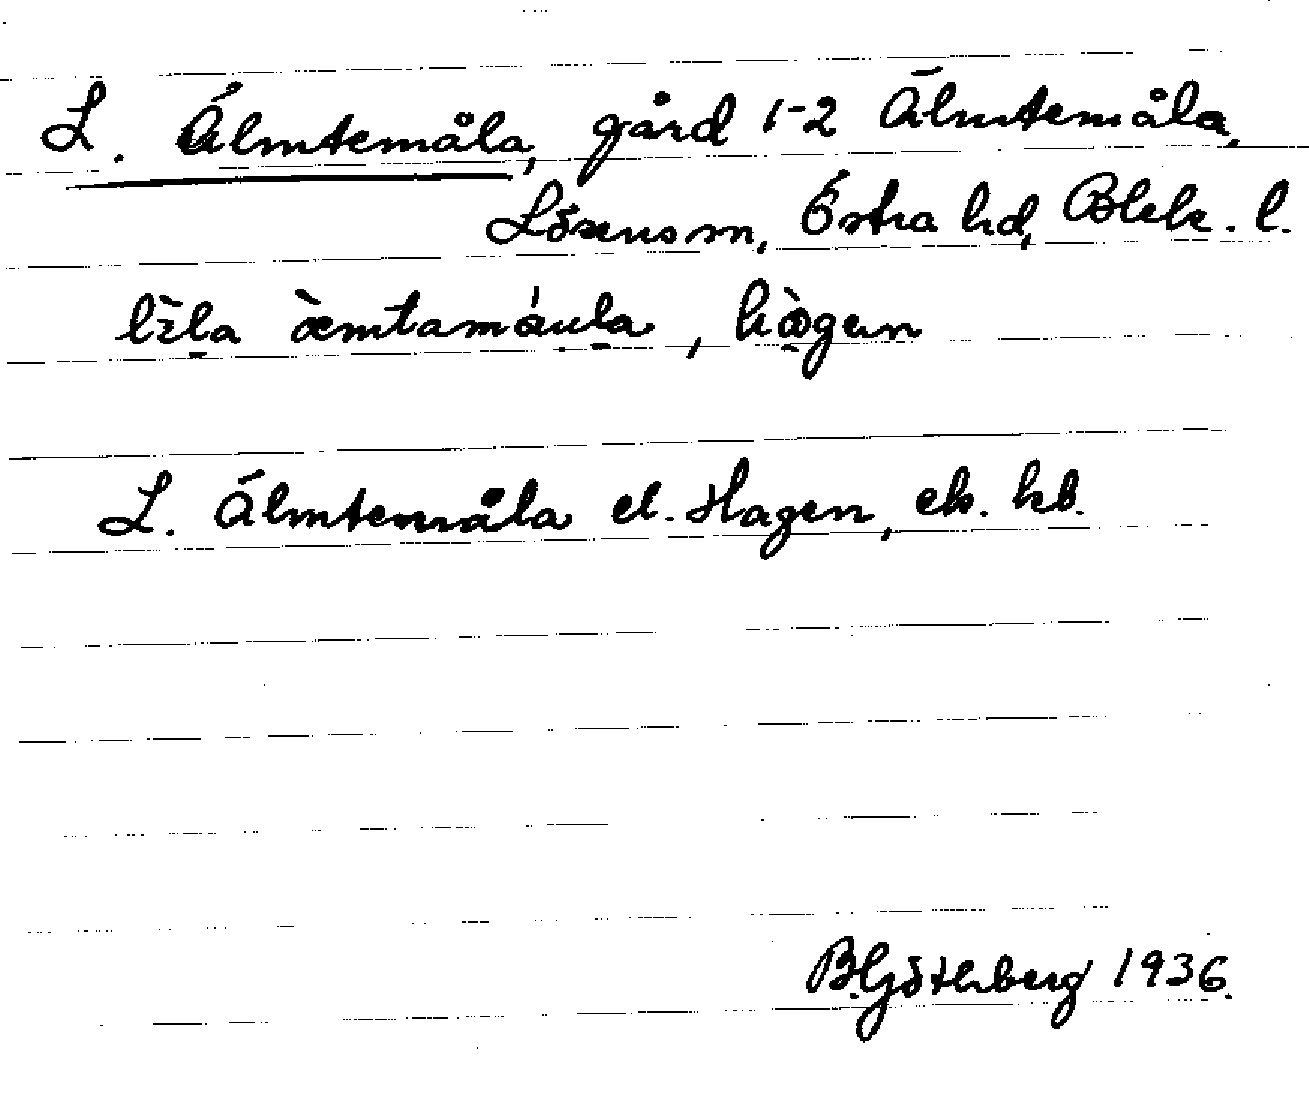 L. Älmtemåla, gård 1-2 Älmtemåla,
Lösens sn, Östra hd, Blek. l.
lìla æ̀mtamáula, hàgen
L. Älmtemåla el. Hagen, ek. kb.
B. Götherberg 1936.